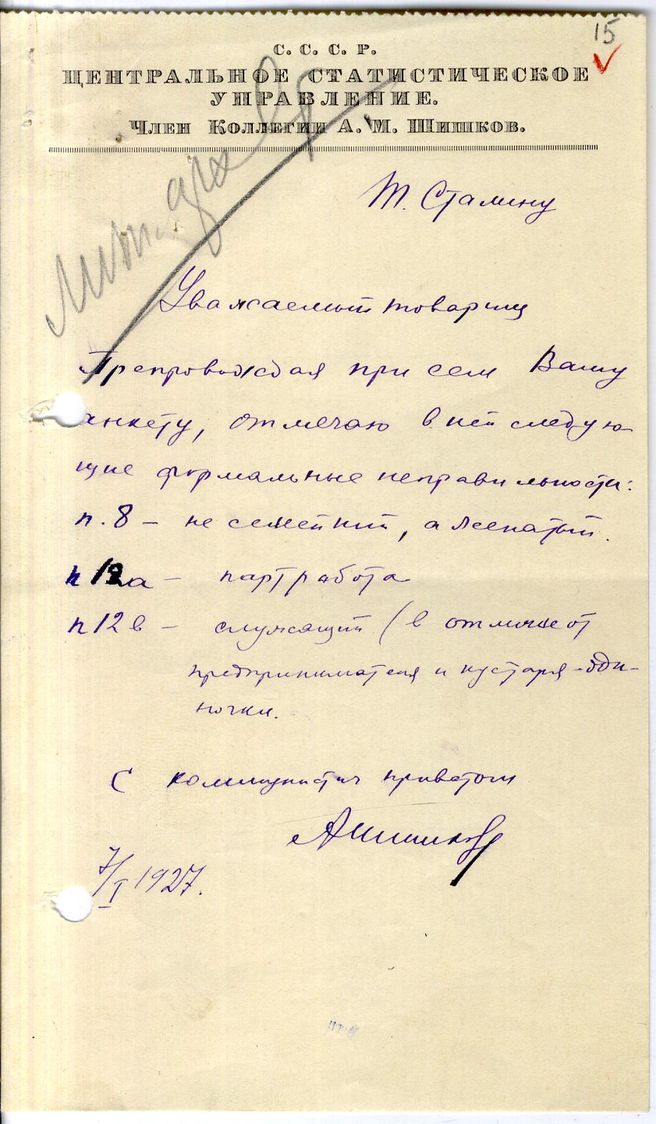 15
С. С. С. Р.
ЦЕНТРАЛЬНОЕ СТАТИСТИЧЕСКОЕ
УПРАВЛЕНИЕ.
Член Коллегии А. М. Шишков.
Т. Сталину
Уважаемый товарищ
Препровождая при сем Вашу
анкету, отмечаю в ней следую-
щие формальные неправильности:
п. 8 – не семейный, а женатый.
п 12а – партработа
п 12в – служащий (в отличие от
предпринимателя и кустаря-оди-
ночки.
С коммунистич приветом
АШишков
7/I 1927.